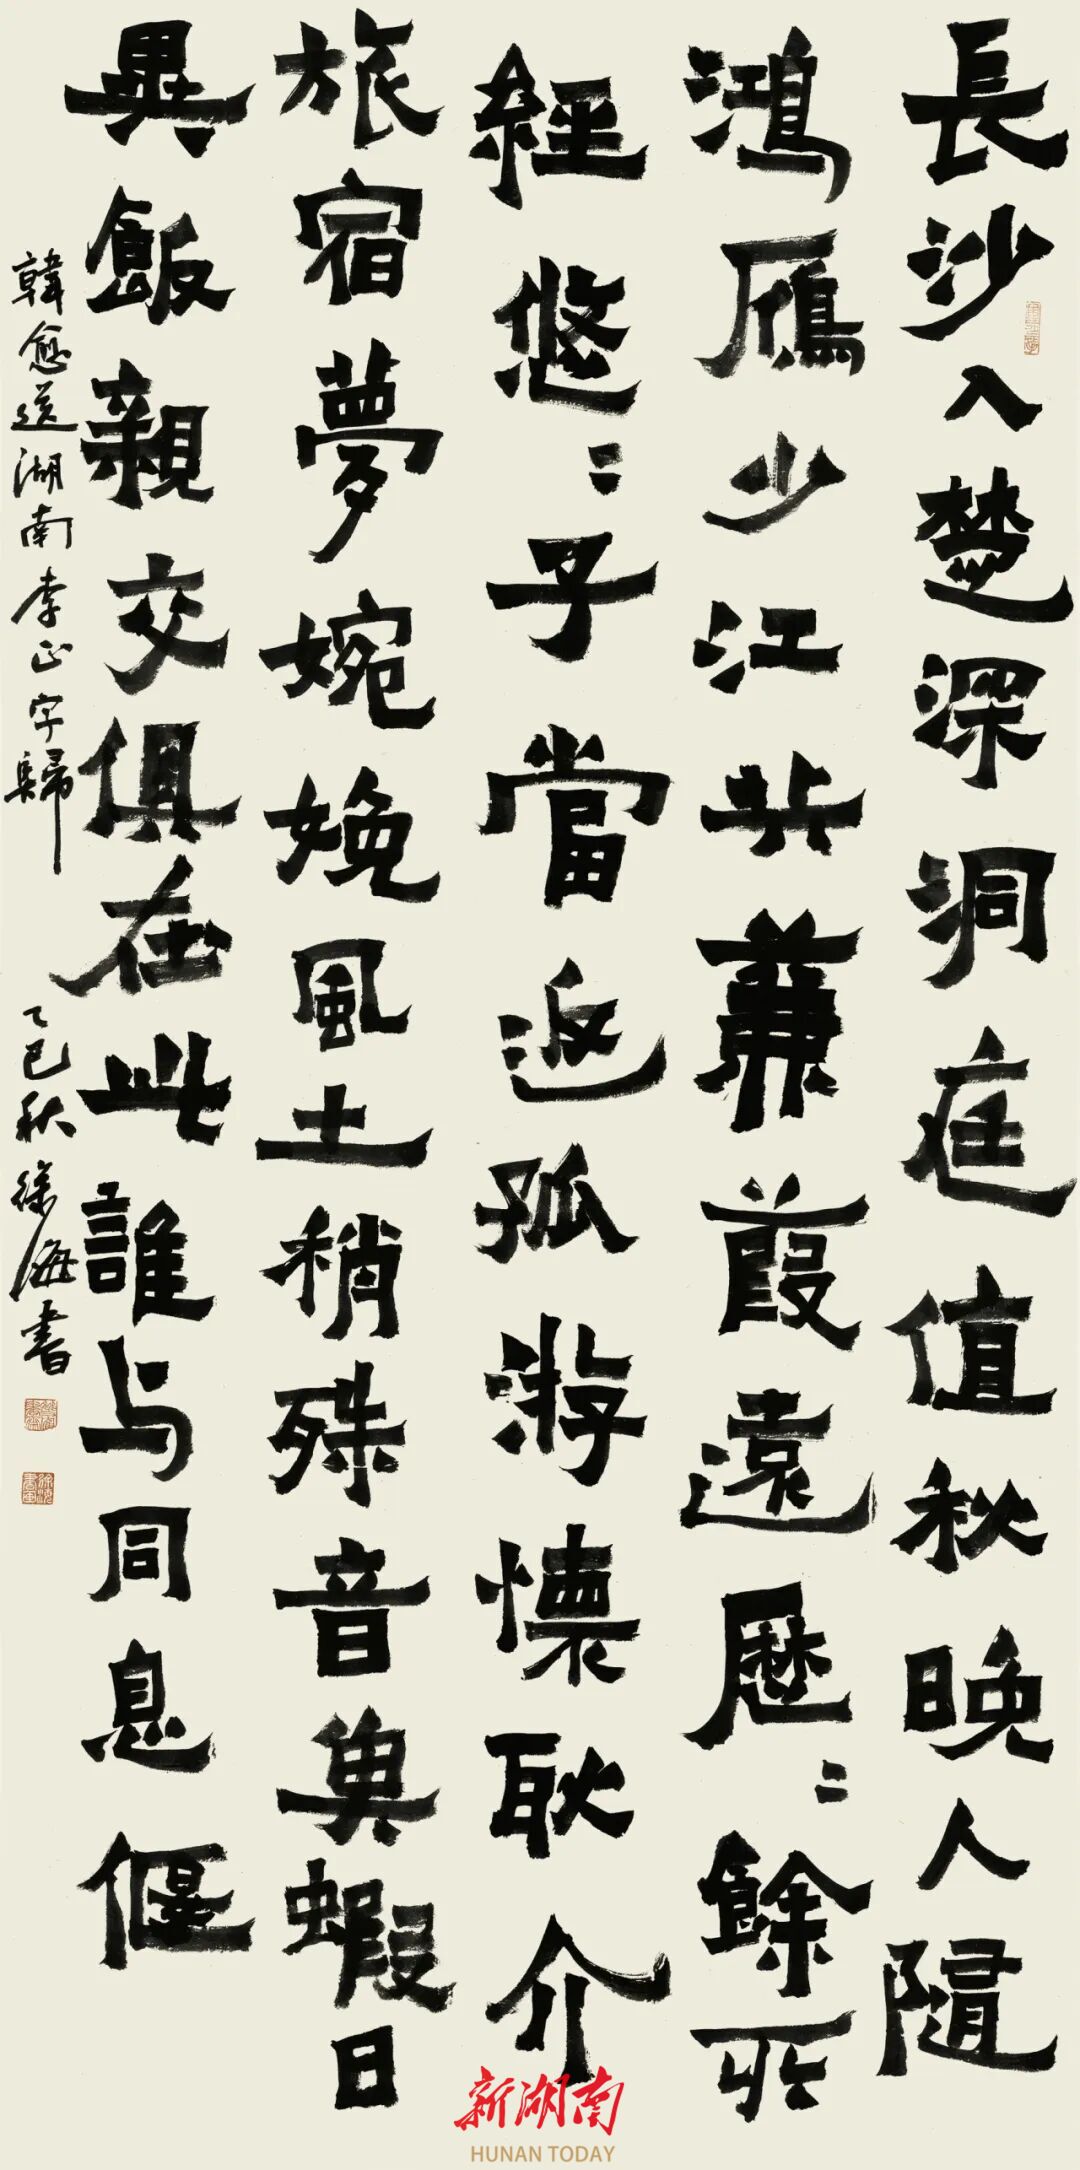 長沙入楚深洞庭值秋晚人隨
鴻雁少江共蒹葭遠歷〻餘所
經悠〻子當返孤游懷耿介
旅宿夢婉娩風土稍殊音魚蝦日
異飯親交俱在此誰与同息偃
韓愈送湖南李正字歸
乙巳秋徐海書
新湖南
HUNAN TODAY